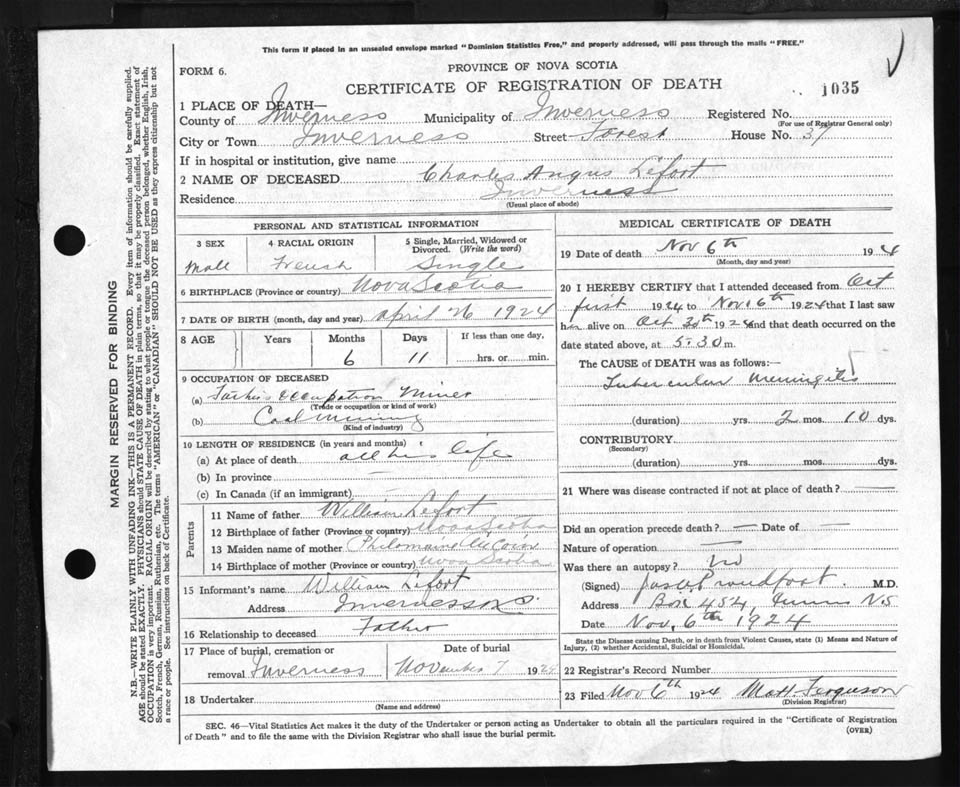 This form if placed in an unsealed envelope marked "Dominion Statistics Free," and properly addressed, will pass through the mails "FREE."
FORM 6.
PROVINCE OF NOVA SCOTIA
CERTIFICATE OF REGISTRATION OF DEATH
1035
1 PLACE OF DEATH—
County of Inverness Municipality of Inverness Registered No.
(For use of Registrar General only)
City or Town Inverness Street Forest House No. 37
If in hospital or institution, give name
2 NAME OF DECEASED Charles Angus Lefort
Residence Inverness
(Usual place of abode)
PERSONAL AND STATISTICAL INFORMATION
3 SEX Male
4 RACIAL ORIGIN French
5 Single, Married, Widowed or Divorced. (Write the word) Single
6 BIRTHPLACE (Province or country) Nova Scotia
7 DATE OF BIRTH (month, day and year) April 26 1924
8 AGE Years Months Days If less than one day,
6 11 hrs. or min.
9 OCCUPATION OF DECEASED
(a) Fathers Occupation Miner
(Trade or occupation or kind of work)
(b) Coal Mining
(Kind of industry)
10 LENGTH OF RESIDENCE (in years and months)
(a) At place of death all his life
(b) In province —
(c) In Canada (if an immigrant) —
Parents
11 Name of father William Lefort
12 Birthplace of father (Province or country) Nova Scotia
13 Maiden name of mother Philomaine
14 Birthplace of mother (Province or country) Nova Scotia
15 Informant's name William Lefort
Address Inverness N.S.
16 Relationship to deceased Father
17 Place of burial, cremation or removal Inverness
Date of burial November 7 1924
18 Undertaker
(Name and address)
MEDICAL CERTIFICATE OF DEATH
19 Date of death Nov 6th 1924
(Month, day and year)
20 I HEREBY CERTIFY that I attended deceased from Oct
first 1924 to Nov. 6th 1924 that I last saw
him alive on Oct 30th 1924 and that death occurred on the
date stated above, at 5.30 m.
The CAUSE OF DEATH was as follows:—
Tubercular Meningitis
(duration) yrs. 2 mos. 10 dys.
CONTRIBUTORY
(Secondary)
(duration) yrs. mos. dys.
21 Where was disease contracted if not at place of death? —
Did an operation precede death? — Date of —
Nature of operation —
Was there an autopsy? No
(Signed) Proudfoot M.D.
Address Box 452, NS
Date Nov. 6th 1924
State the Disease causing Death, or in death from Violent Causes, state (1) Means and Nature of
Injury, (2) whether Accidental, Suicidal or Homicidal.
22 Registrar's Record Number
23 Filed Nov 6th 1924 Matt. Ferguson
(Division Registrar)
SEC. 46—Vital Statistics Act makes it the duty of the Undertaker or person acting as Undertaker to obtain all the particulars required in the "Certificate of Registration
of Death" and to file the same with the Division Registrar who shall issue the burial permit.
(OVER)
MARGIN RESERVED FOR BINDING
N.B.—WRITE PLAINLY WITH UNFADING INK—THIS IS A PERMANENT RECORD. Every item of information should be carefully supplied.
AGE should be stated EXACTLY. PHYSICIANS should STATE CAUSE OF DEATH in plain terms, so that it may be properly classified. Exact statement of
OCCUPATION is very important. RACIAL ORIGIN will be described by stating to what people or tongue the deceased person belonged, whether English, Irish,
Scotch, French, German, Russian, Ruthenian, etc. The terms "AMERICAN" or "CANADIAN" SHOULD NOT BE USED as they express citizenship but not
a race or people. See instructions on back of Certificate.